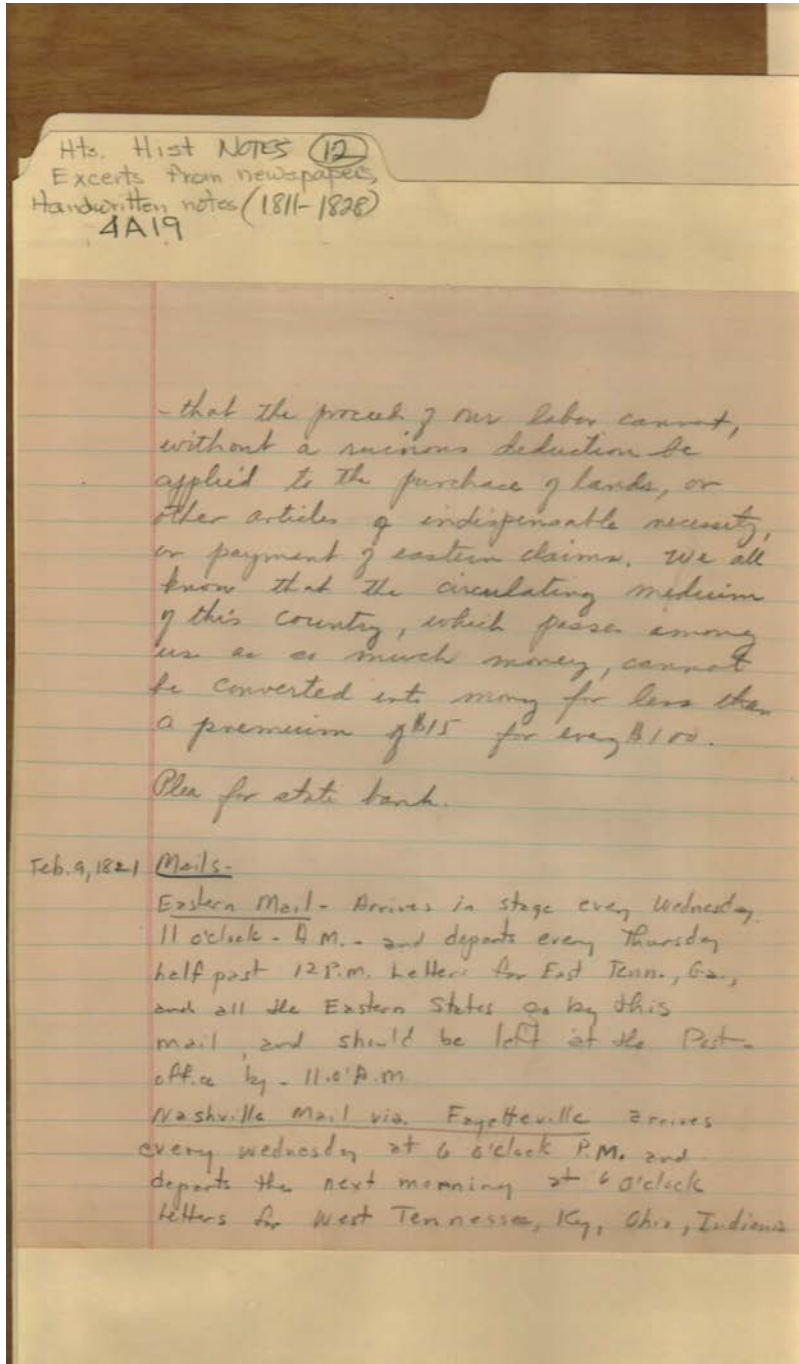 Hts. Hist NOTES (12)
Excerts from newspapers,
Handwritten notes (1811-1828)
4A19
- that the proceeds of our labor cannot,
without a ruinous deduction be
applied to the purchace of lands, or
other articles of indispensable necessity,
or payment of eastern claims. We all
know that the circulating medium
of this country, which passes among
us as so much money, cannot
be converted into money for less than
a premium of $15 for every $100.
Plea for state bank.
Feb. 9, 1821 Mails-
Eastern Mail - Arrives in stage every Wednesday
11 o'clock - A M. - and departs every Thursday
half past 12 P.m. Letters for East Tenn., Ga.,
and all the Eastern States go by this
mail, and should be left at the Post-
office by - 11.o'A.M
Nashville Mail via. Fayetteville arrives
every wednesday at 6 o'clock P.M. and
departs the next mornning at 6 o'clock
Letters for West Tennessee, Ky, Ohio, Indiana